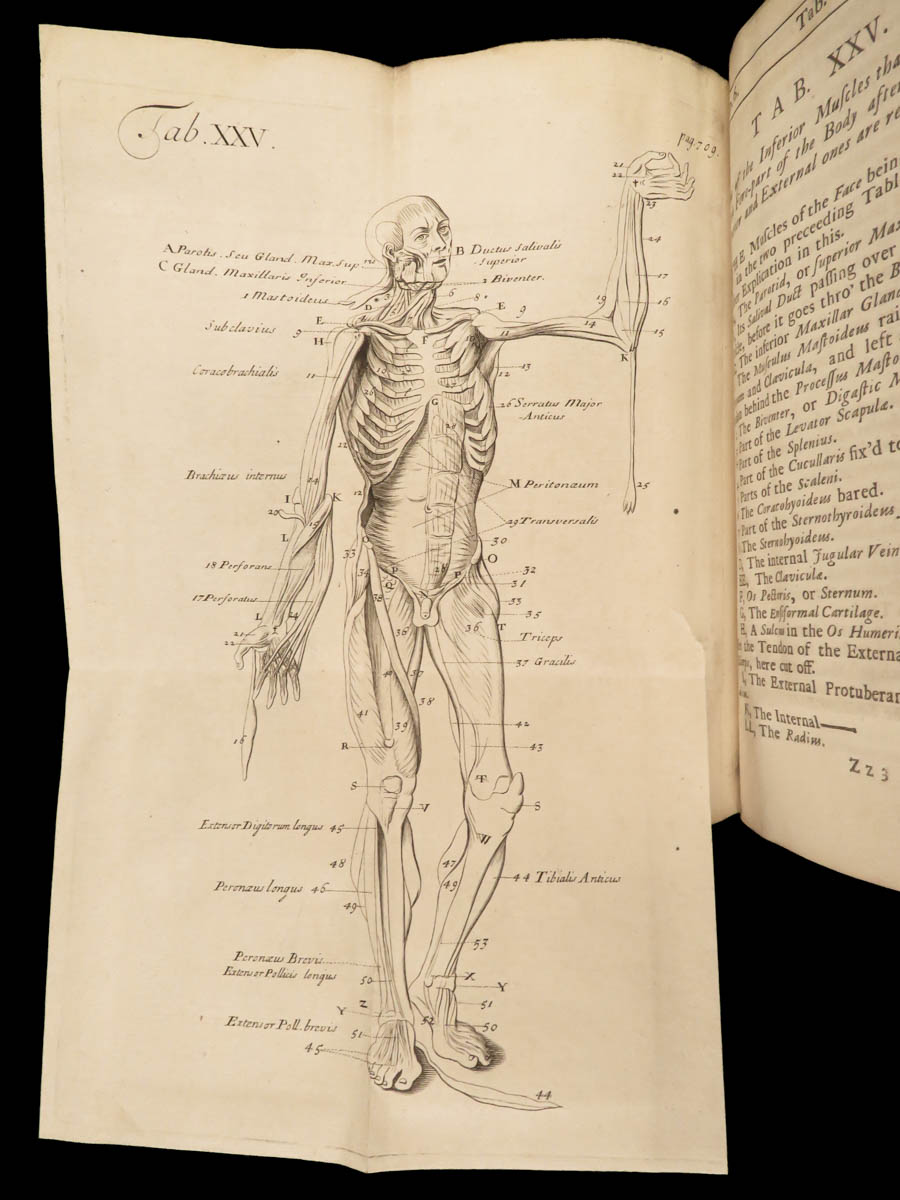 Tab. XXV.
pag. 709.
21
22
23
24
A Parotis. Seu Gland. Max. Sup
B Ductus Salivalis
Superior
C Gland. Maxillaris Inferior
2 Biventer.
1 Mastoideus
17
16
15
19
14
K
D
6
8
E
9
E
Subclavius
9
H
F
11
Coracobrachialis
11
13
12
26 Serratus Major
Anticus
G
Brachiæus internus
M Peritonæum
29 Transversalis
25
I
K
L
15
12
O
30
O
33
34
32
31
18 Perforans
P
Q
P
N
33
17 Perforatus
35
T
36
Triceps
36
37 Gracilis
L
21
22
37
38
41
39
42
16
R
43
S
S
V
W
Extensor Digitorum longus 45
48
47
49
44 Tibialis Anticus
Peronæus longus 46
49
53
Peronæus Brevis
Extensor Pollicis longus
50
X
Y
Z
Y
51
Extensor Poll. brevis
51
52
50
45
44
Tab.
TAB. XXV.
of the Inferior Muſcles tha
Fore-part of the Body after
and External ones are re
Muſcles of the Face bein
in the two preceeding Tabl
Explication in this.
The Parotid, or Superior Max
Its Salival Duct paſſing over
before it goes thro' the B
The inferior Maxillar Gland
The Muſculus Maſtoideus rai
and Clavicula, and left
behind the Proceſſus Maſto
The Biventer, or Digaſtic M
Part of the Levator Scapulæ.
Part of the Splenius.
Part of the Cucullaris fix'd to
Parts of the Scaleni.
The Coracohyoideus bared.
Part of the Sternothyroideus
The Sternohyoideus.
The internal Jugular Vein
EE, The Claviculæ.
F, Os Pectoris, or Sternum.
G, The Enſiformal Cartilage.
H, A Sulcus in the Os Humeri
the Tendon of the Externa
here cut off.
I, The External Protuberan
K, The Internal
LL, The Radius.
Zz3